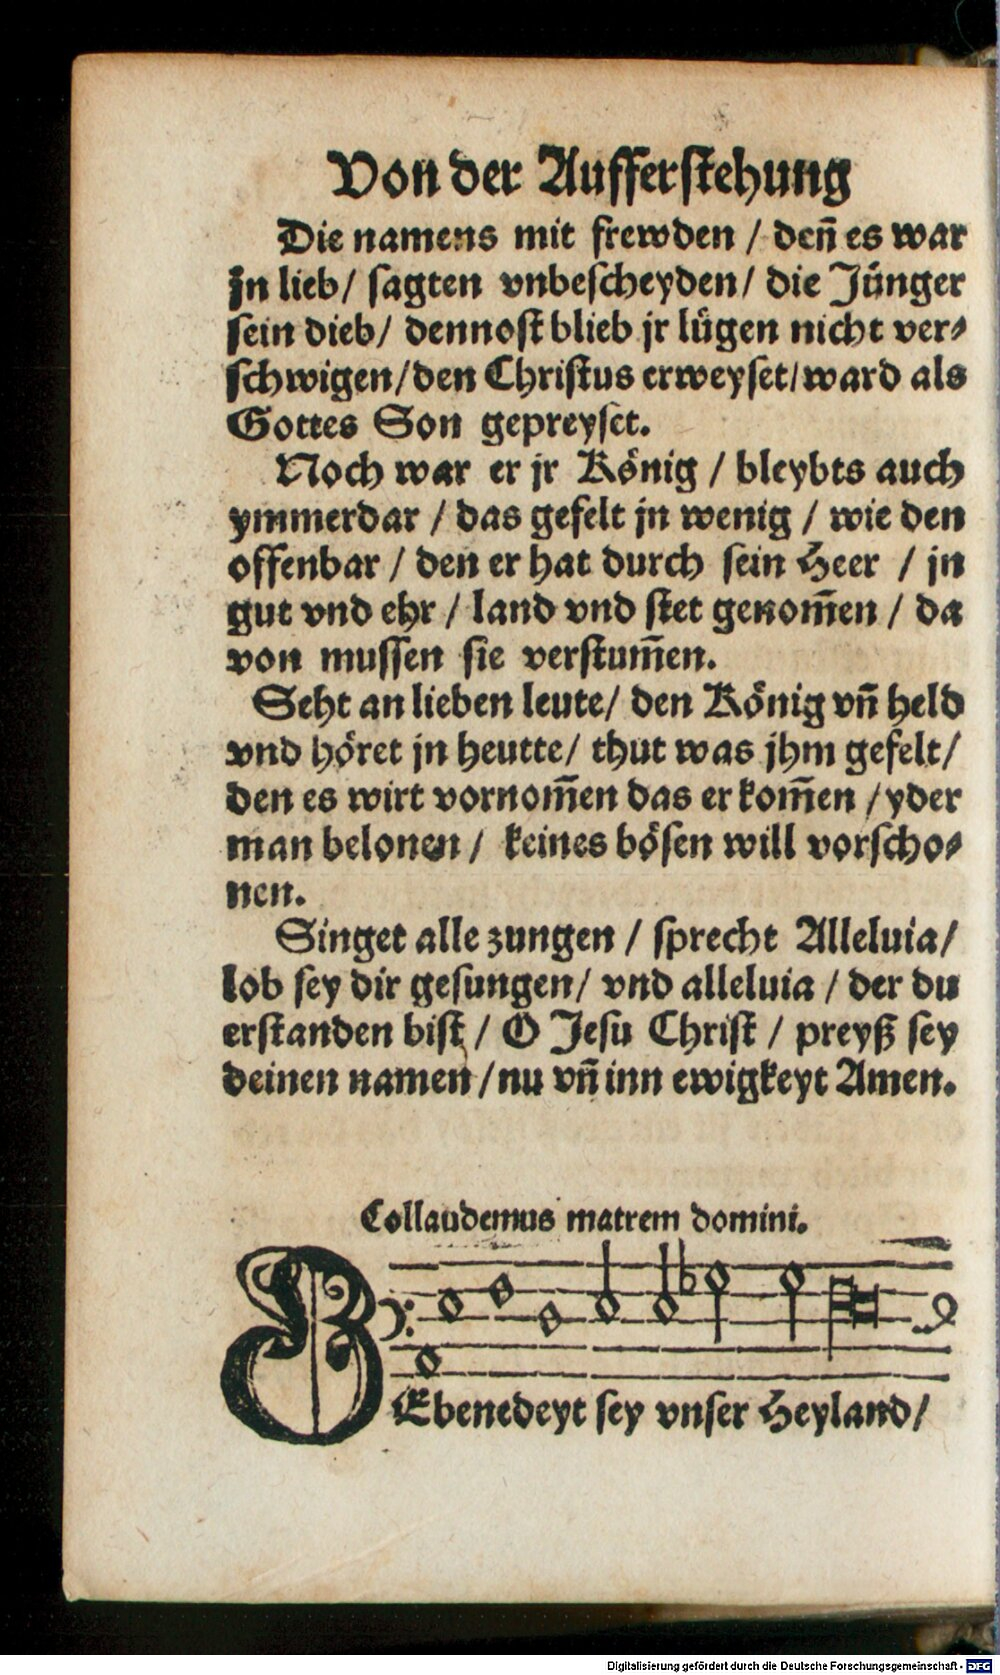 Von der Aufferstehung
Die namens mit frewden / deñ es war
jn lieb / sagten vnbescheyden / die Jünger
sein dieb / dennost blieb jr lügen nicht ver⸗
schwigen / den Christus erweyset / ward als
Gottes Son gepreyset.
Noch war er jr König / bleybts auch
ymmerdar / das gefelt jn wenig / wie den
offenbar / den er hat durch sein Heer / jn
gut vnd ehr / land vnd stet genom̃en / da
von mussen sie verstum̃en.
Seht an lieben leute / den König vñ held
vnd höret jn heutte / thut was jhm gefelt /
den es wirt vornom̃en das er kom̃en / yder
man belonen / keines bösen will vorscho⸗
nen.
Singet alle zungen / sprecht Alleluia /
lob sey dir gesungen / vnd alleluia / der du
erstanden bist / O Jesu Christ / preyß sey
deinen namen / nu vñ inn ewigkeyt Amen.
Collaudemus matrem domini.
GEbenedeyt sey vnser Heyland /
Digitalisierung gefördert durch die Deutsche Forschungsgemeinschaft - DFG